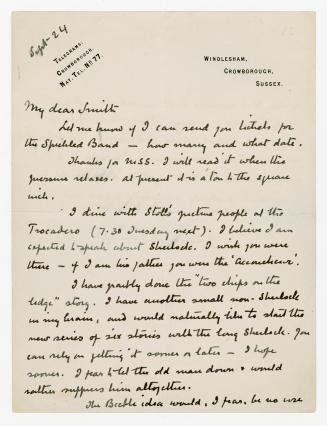 Sept-24
TELEGRAMS:
CROWBOROUGH.
NAT. TEL. NO. 77.
WINDLESHAM,
CROWBOROUGH,
SUSSEX.
My dear Smith
Let me know if I can send you tickets for
the Speckled Band — how many and what date.
Thanks for MSS. I will read it when the
pressure relaxes. At present it is a ton to the square
inch.
I dine with Stoll's picture people at the
Trocadero (7.30 Tuesday next). I believe I am
expected to speak about Sherlock. I wish you were
there — if I am his father you were the 'Accoucheur'.
I have partly done the "two chips on the
ledge" story. I have another small non-Sherlock
in my brain, and would naturally like to start the
new series of six stories with the long Sherlock. You
can rely on getting it sooner or later — I hope
sooner. I fear to let the old man down & would
rather suppress him altogether.
The Beeble idea would, I fear, be no use